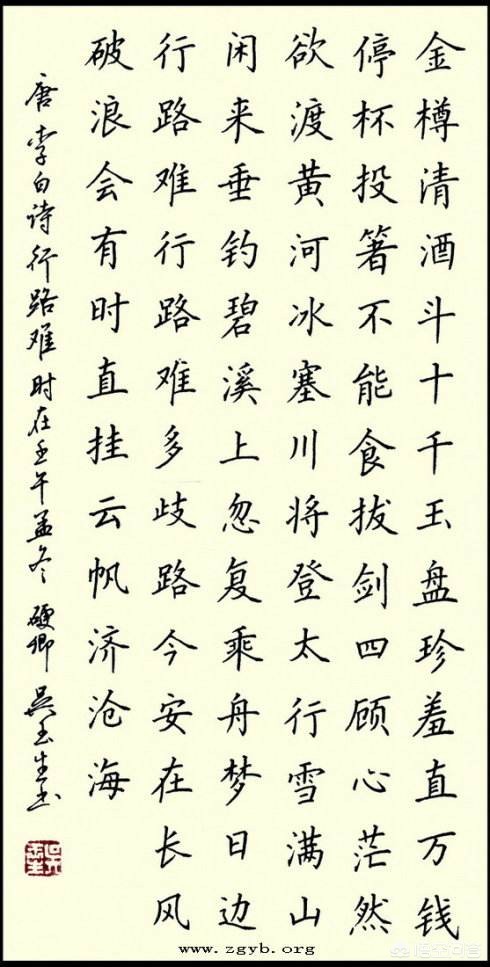 金樽清酒斗十千玉盘珍羞直万钱
停杯投箸不能食拔剑四顾心茫然
欲渡黄河冰塞川将登太行雪满山
闲来垂钓碧溪上忽复乘舟梦日边
行路难行路难多歧路今安在长风
破浪会有时直挂云帆济沧海
唐李白诗行路难时在壬午孟冬 硬卿 吴玉生书
www.zgyb.org